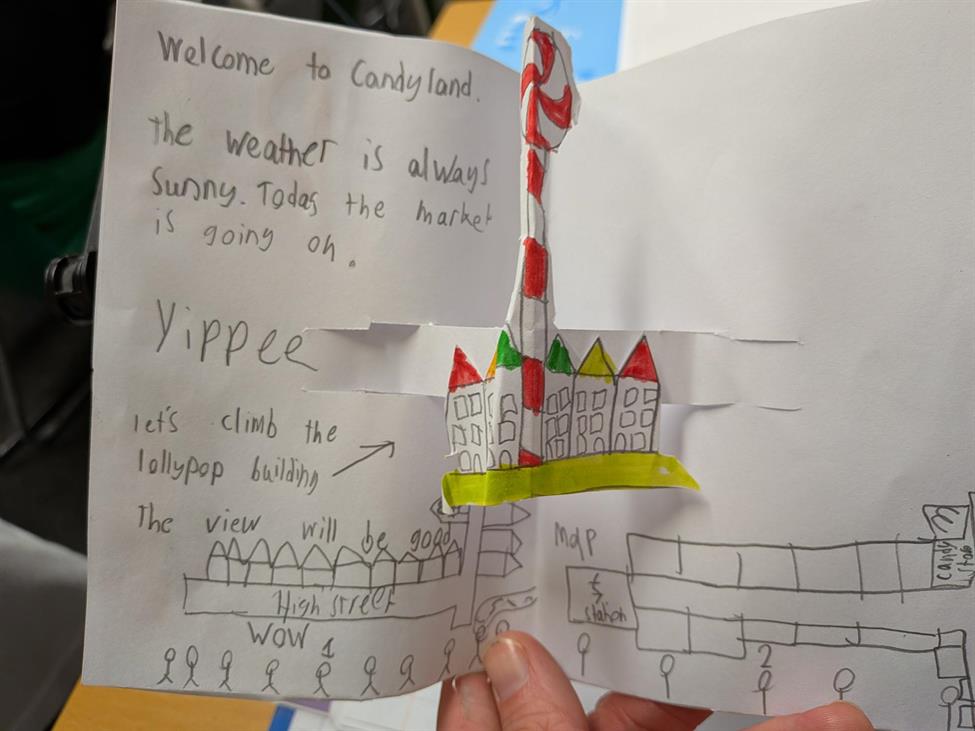 Welcome to Candyland.
The weather is always
Sunny. Today the market
is going on.
Yippee
let's climb the
lollypop building
The view will be good
High street
WOW 1
Map
station
2
candy